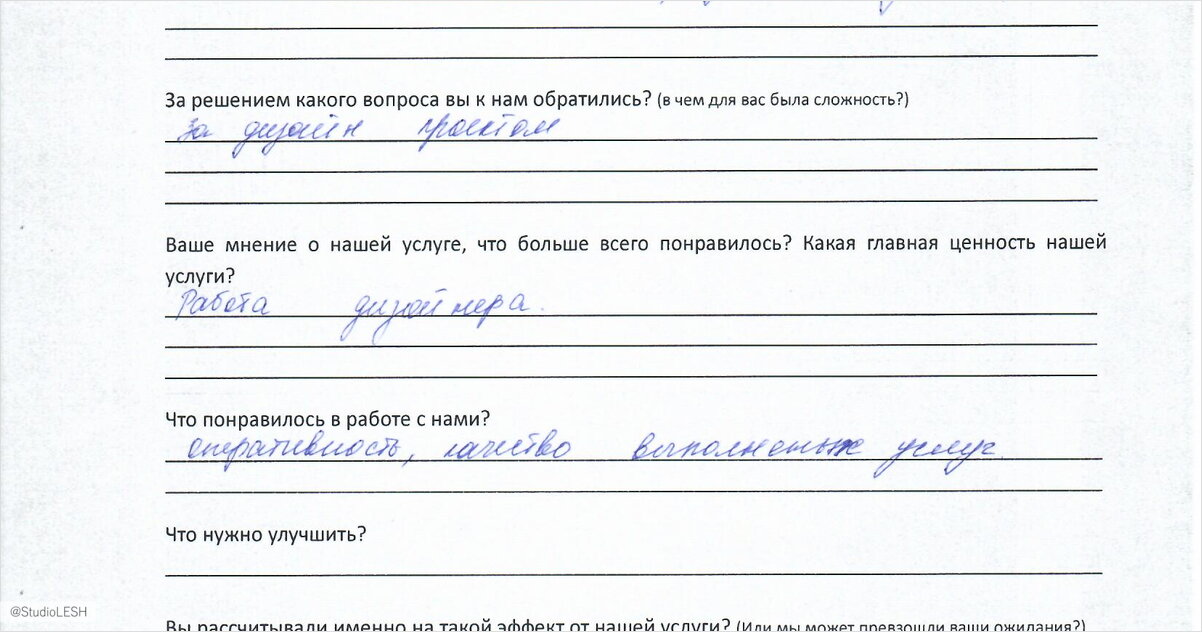 За решением какого вопроса вы к нам обратились? (в чем для вас была сложность?)
За дизайн проектом
Ваше мнение о нашей услуге, что больше всего понравилось? Какая главная ценность нашей
услуги?
Работа дизайнера.
Что понравилось в работе с нами?
оперативность, качество выполненых услуг
Что нужно улучшить?
@StudioLESH
Вы рассчитывали именно на такой эффект от нашей услуги? (Или мы может превзошли ваши ожидания?)